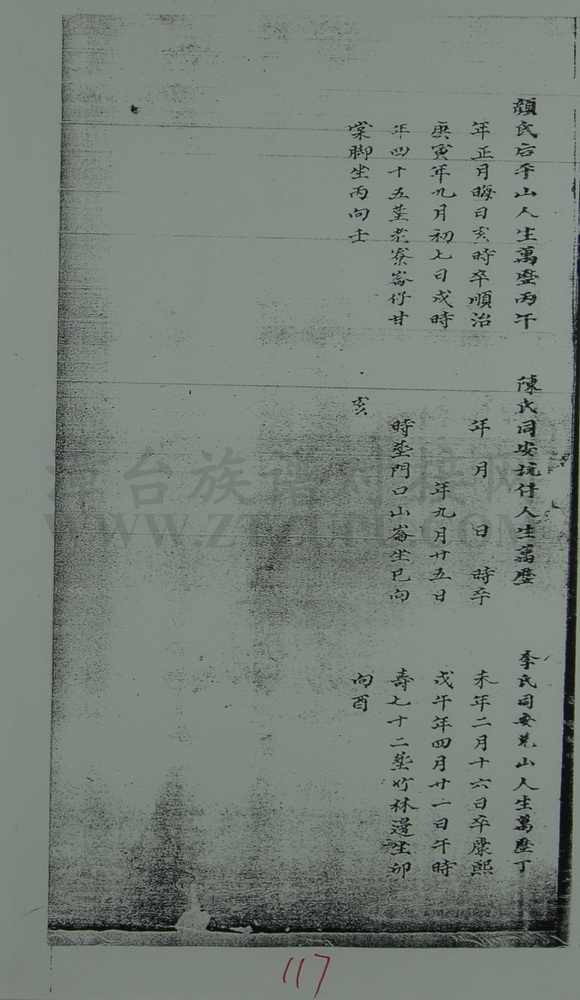 顏氏后平山人生萬歷丙午
年正月晦日亥時卒順治
庚寅年九月初七日戌時
年四十五葬老寮崙仔甘
棠脚坐丙向壬
陳氏同安坑仔人生萬歷
年 月 日 時卒
年九月廿五日
時葬門口山崙坐巳向
亥
李氏同安兜山人生萬歷丁
未年二月十六日卒康熙
戊午年四月廿一日午時
壽七十二葬竹林邊坐卯
向酉
漳台族谱对接网
WWW.ZTZUPU.COM
117